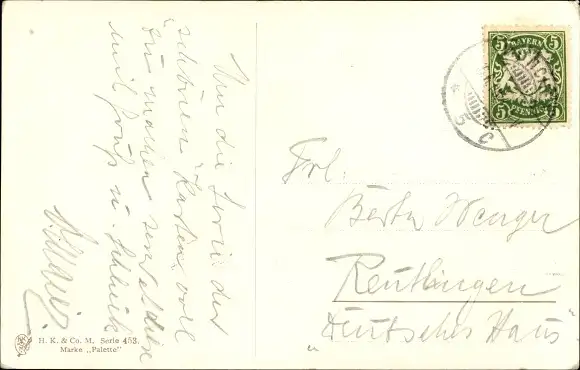 Um die Serie der
schönen Karten voll
zu machen sendet diese
mit Gruß u.
H. K. & Co. M. Serie 453.
Marke „Palette"
BAYERN
5 5
5 5
PFENNIG
5 C
Frl.
Berta Wenger
Reutlingen
„Deutsches Haus"